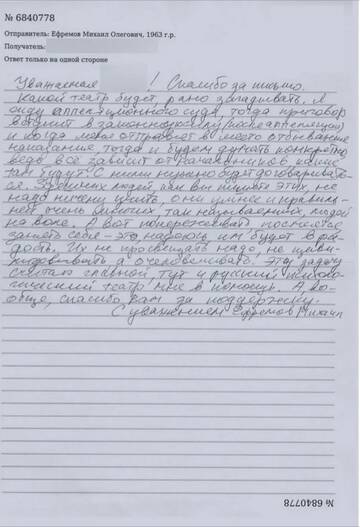 № 6840778
Отправитель: Ефремов Михаил Олегович, 1963 г.р.
Получатель:
Ответ только на одной стороне
Уважаемая ! Спасибо за письмо.
Какой театр будет рано загадывать, я
жду аппеляционного суда, тогда приговор
вступит в законную силу (после аппеляции)
и когда меня отправят в место отбывания
наказания, тогда и будем думать конкретно
ведь всё зависит от начальников какие
там будут. С ними нужно будет договаривать
ся. людей, как вы пишите этих, не
надо ничему учить, они умнее и
ней очень многих, так называемых, людей
на воле. А вот попереживать посмеяться
занять себя – это наверное им будет в ра-
дость. Их не просвещать надо, не
а очеловечивать. Эту задачу
считаю главной тут и русский психоло-
гический театр мне в помощь. А во-
обще, спасибо вам за поддержку.
С уважением Ефремов Михаил
№ 6840778